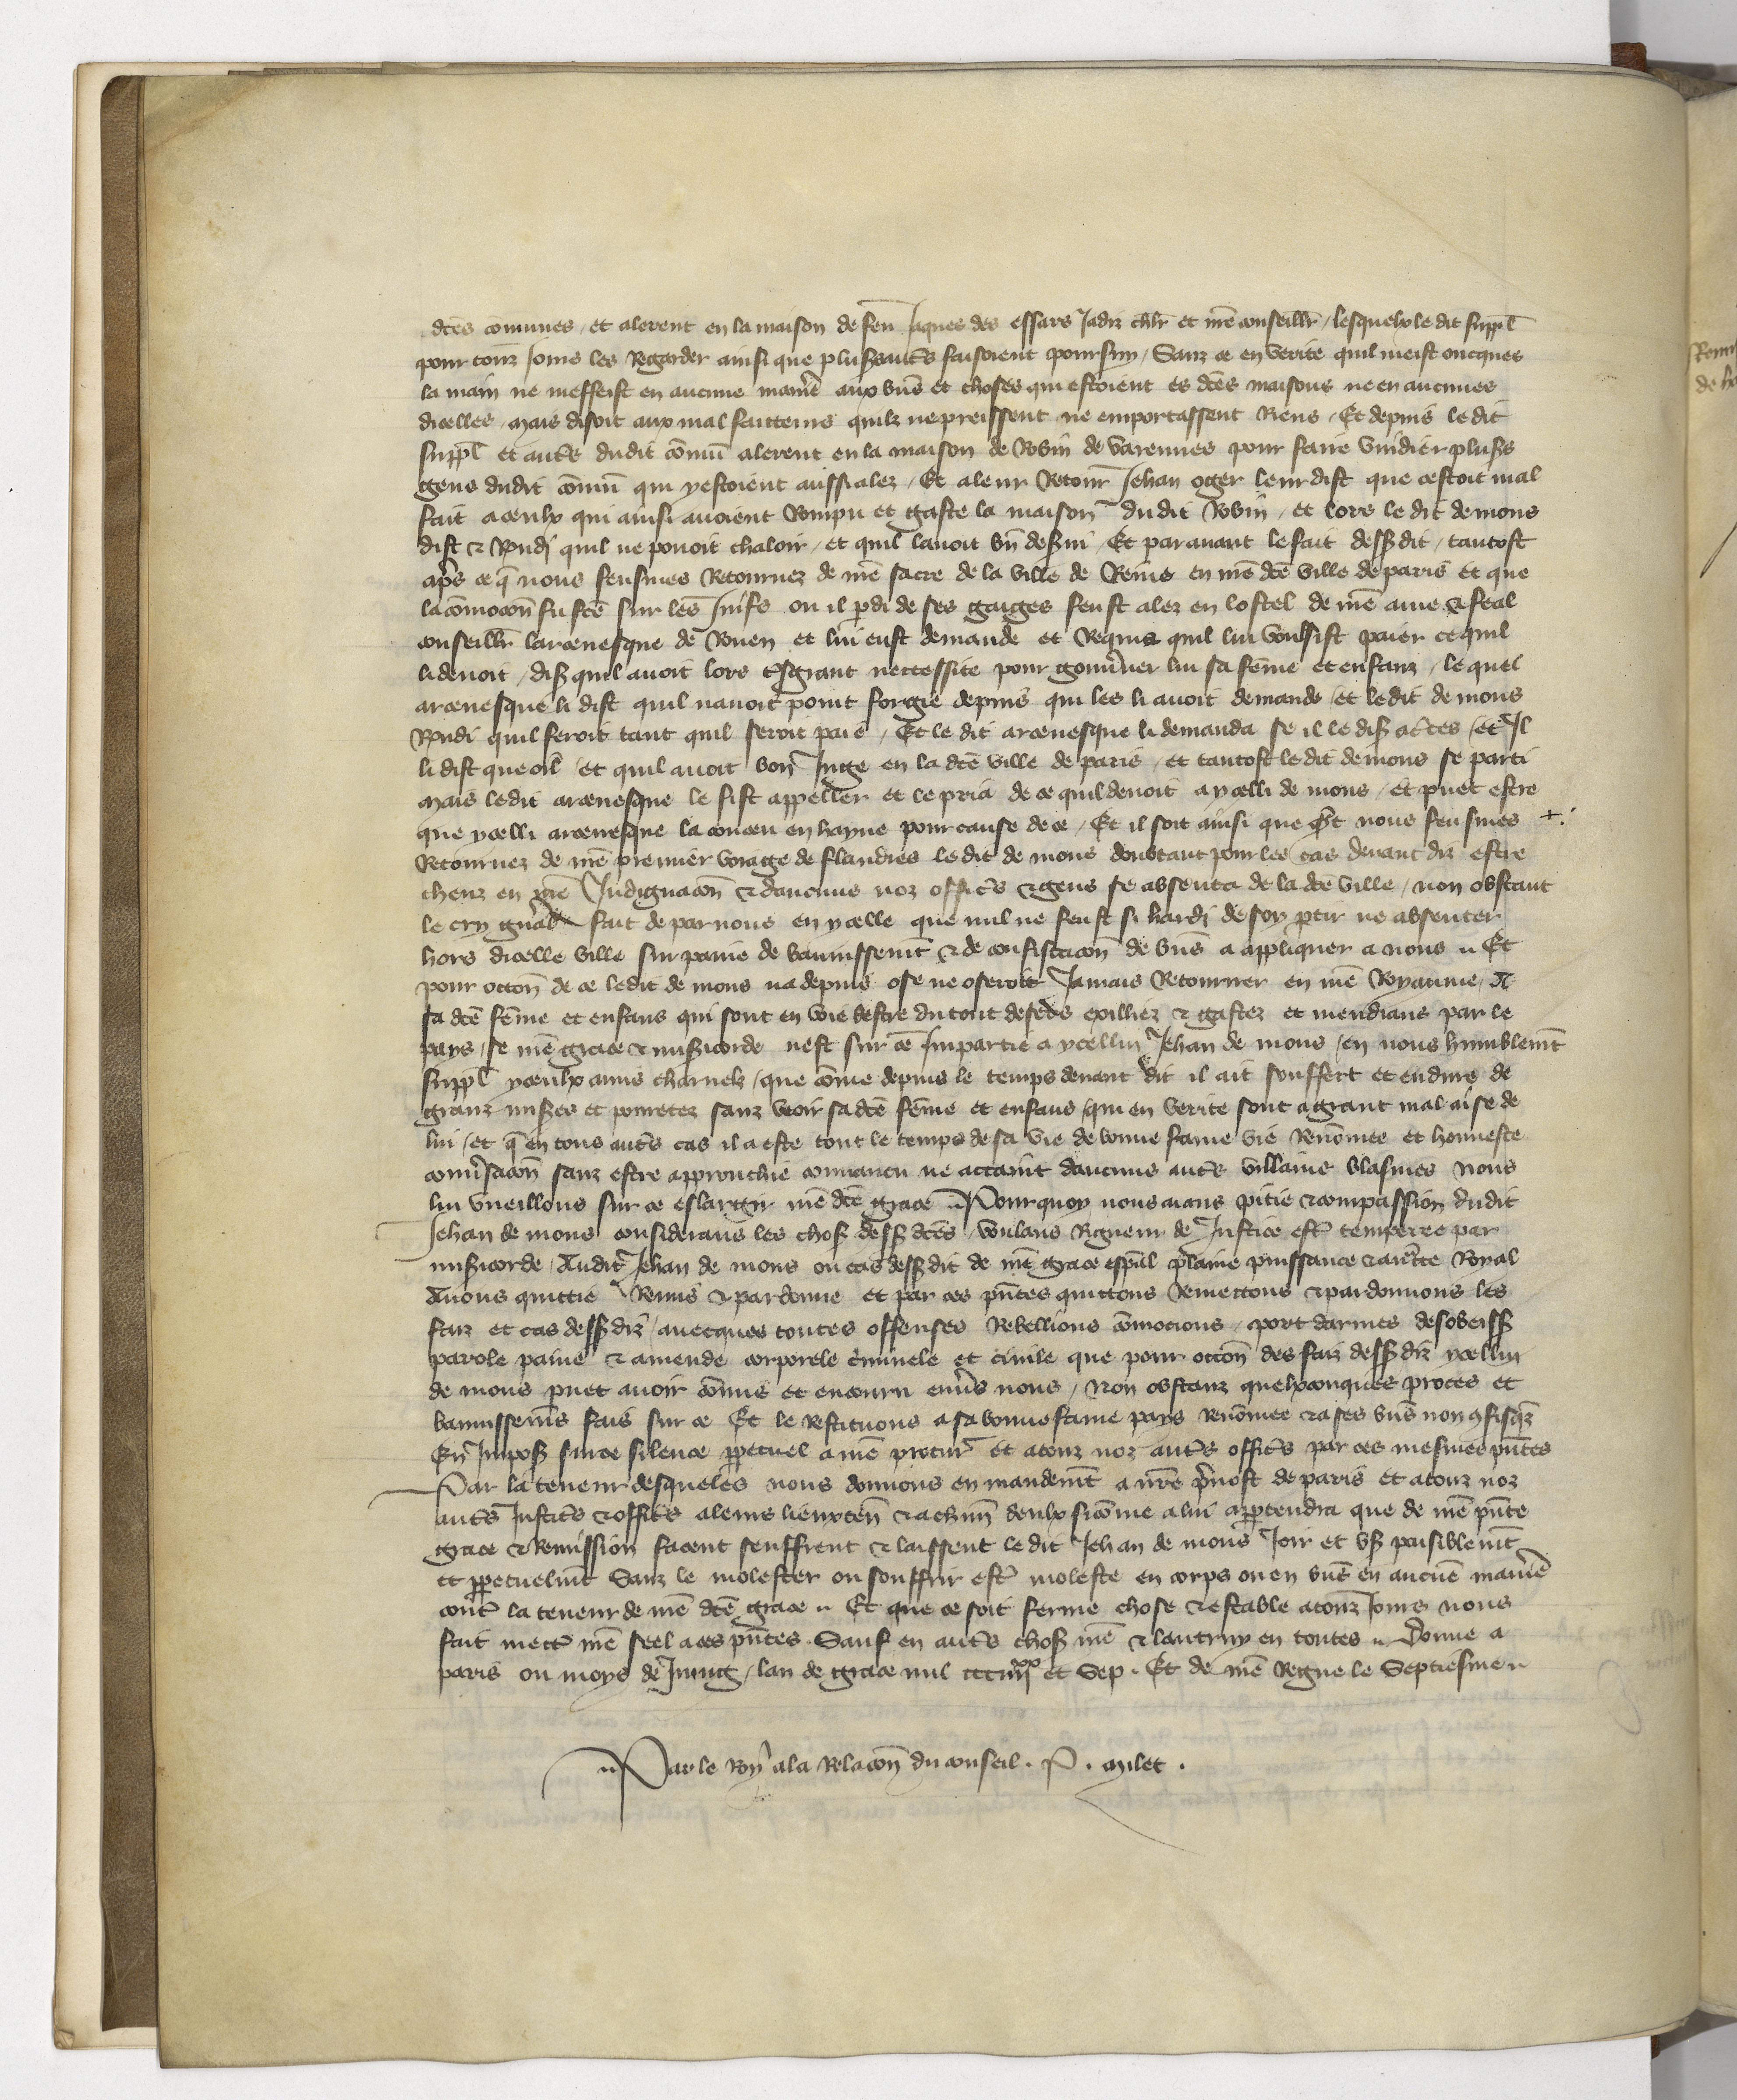 dces communes et alerent en la maison de feu Jaques des essars Jadiz chlr et nre conseillr lesquelx le dit suppl
pour touz Jours les Regarder ainsi que plusrs autrs faisoient pour suy Sanz ce en verite quil meist oncques
la main ne meffeist en aucune manie aux biens et choses qui estoient es dces maisons ne en aucunes
dicelles mais disoit aux mal faitteurs quilz ne preissent ne emportassent Riens Et depuis le dit
suppl et autrs dudit comun alerent en la maison de Robin de varennes pour faire vuidier plusrs
gens dudit comun qui y estoient aussi alez Et a leur Retour Jehan oger leur dist que cestoit mal
fait a ceulx qui ainsi avoient Rompu et gaste la maison dudit Robin et lors le dit de mons
dist & Rndi quil ne povoit chaloir et quil lavoit bn desvi Et par avant le fait dessdit tantost
aprs ce q nous feusmes Retournez de nre sacre de la ville de Reins en nre dce ville de paris et que
la comocon fu fce sur les Juifs ou il pdi de ses gaiges feust alez en lostel de nre ame & feal
conseillr larcevesque de Rouen et lui eust demande et Requis quil lui voulsist paier ce quil
li devoit dist quil avoit lors tsgrant neccessite pour gouvner lui sa feme et enfanz le quel
arcevesque li dist quil navoit point forgie depuis qui les li avoit demande et le dit de mons
Rndi quil feroit tant quil seroit paie Et le dit arcevesque li demanda se il le dist actes et Il
li dist que oil et quil avoit bon Juge en la dce ville de paris et tantost le dit de mons se parti
mais ledit arcevesque le fist appeller et le pria de ce quil devoit a ycelli de mons et puet estre
que ycelli arcevesque la conceu en hayne pour cause de ce Et il soit ainsi que qnt nous feusmes +
Retournez de nre premier voiage de flandres le dit de mons doubtant pour les cas devant diz estre
cheuz en nre Indignacon & daucuns noz offics & gens se absenta de la dce ville non obstant
le cry gnal fait de par nous en ycelle que nul ne feust si hardi de soy ptir ne absenter
hors dicelle ville sur paine de bannissemt & de confiscacon de biens a appliquer a nous Et
pour occon de ce ledit de mons na depuis ose ne oseroit Jamais Retourner en nre Royaume A
sa dce feme et enfans qui sont en voie destre du tout defs exilliez & gastez et mendians par le
pays se nre grace & misicorde nest sur ce Impartie a ycellui Jehan de mons en nous humblemt
suppl yceulx amis charnelz que come depuis le temps devant dit il ait souffert et endure de
granz miseres et povretez sanz veoir sa dce feme et enfans qui en verite sont a grant mal aise de
lui et q en tous autrs cas il a este tout le temps de sa vie de bonne fame vie Renomee et honneste
convsacon sanz estre approuchie convaincu ne attaint daucuns autrs villains blasmes nous
lui vueillons sur ce eslargir nre dce grace Pour quoy nous aians pitie & compassion dudit
Jehan de mons considerans les choses dess dces voulans Rigueur de Justice estre temperee par
misicorde Audit Jehan de mons ou cas dessdit de nre grace espal plaine puissance & auctte Royal
Avons quittie Remis & pardonne et par ces pntes quittons Remettons & pardonnons les
faiz et cas dess diz avecques toutes offenses Rebellions comocions port darmes desobeiss
parole paine & amende corporele criminele et civile que pour occon des faiz dess diz ycellui
de mons puet avoir comis et encouru envrs nous Non obstanz quelxconques proces et
bannissemens fais sur ce Et le Restituons a sa bonne fame pays Renomee & a ses biens non 9fisqz
En Impost sur ce silence ppetuel a nre procur et a touz noz autrs offics par ces mesmes pntes
Par la teneur desqueles nous donnons en mandemt a nre pvost de paris et a touz noz
autrs Justics & offics a leurs lieuxten & a chun deulx sicome a lui apptendra que de nre pnte
grace & Remission facent seuffrent & laissent le dit Jehan de mons Joir et user paisiblemt
et ppetuelmt Sanz le molester ou souffrir estre moleste en corps ou en biens en aucune manie
contre la teneur de nre dce grace Et que ce soit ferme chose & estable a touz Jours nous
fait mettre nre seel a ces pntes Sauf en autrs choses nre & lautruy en toutes Donne a
paris ou moys de Juing lan de grace mil ccciiiixx et Sep Et de nre Regne le Septiesme
Par le Roy a la Relacon du conseil . P . milet .